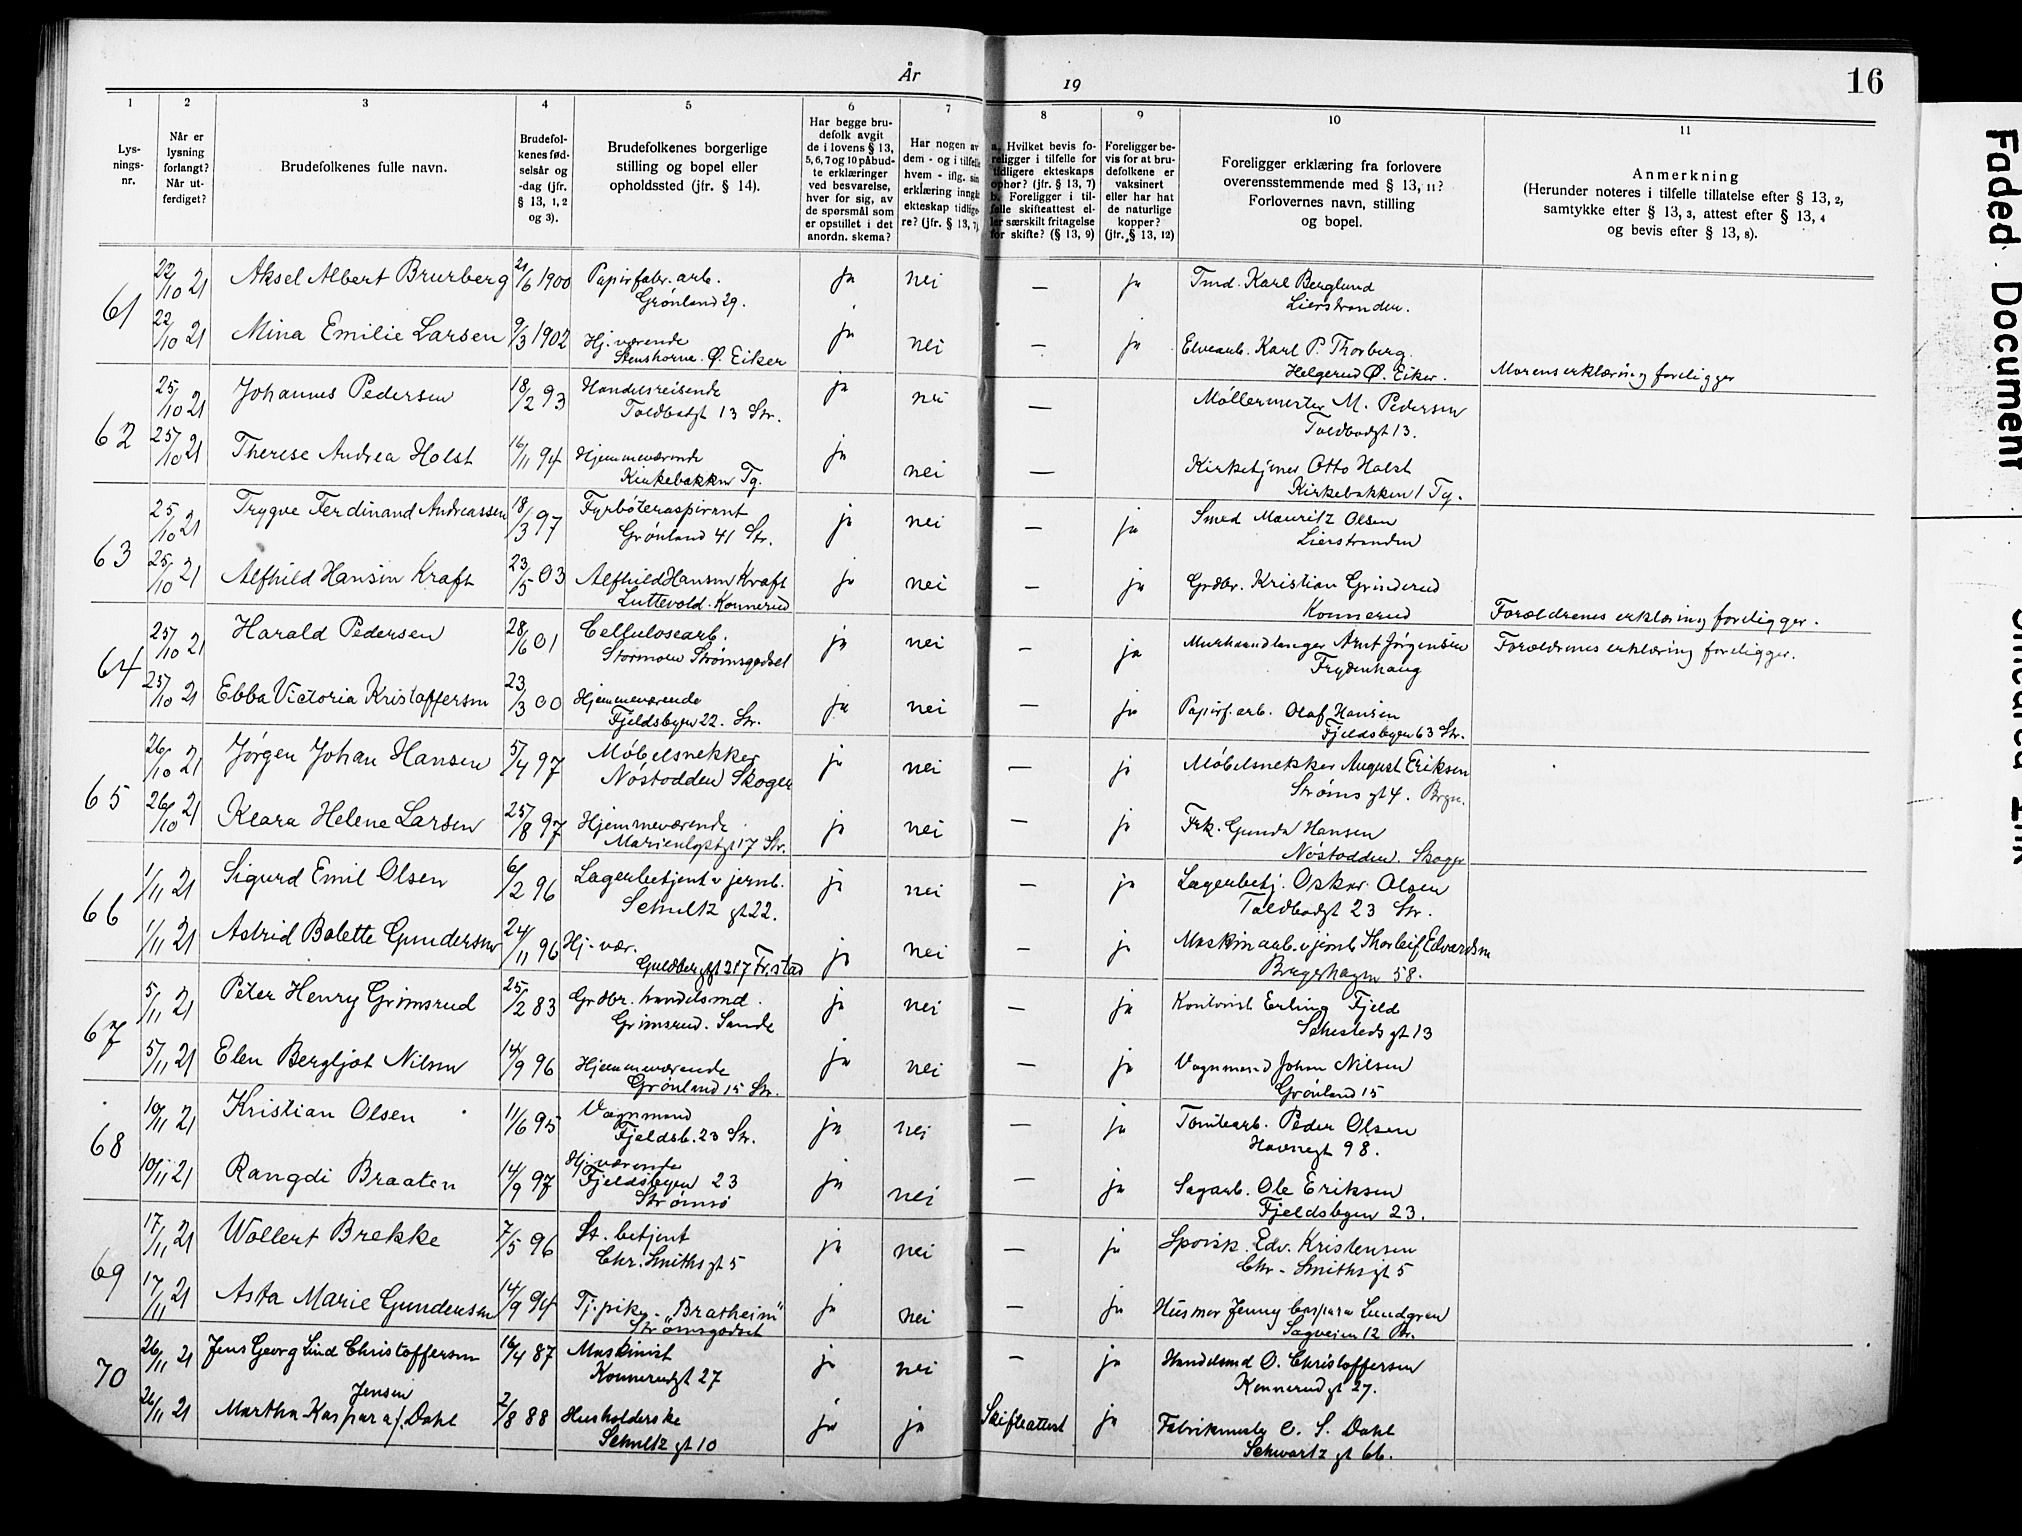 År 19
16
1 2 3 4 5 6 7 8 9 10 11
Lys-
nings-
nr.
Når er
lysning
forlangt?
Når ut-
ferdiget?
Brudefolkenes fulle navn.
Brudefol-
kenes fød-
selsår og
-dag (jfr.
§ 13, 1, 2
og 3).
Brudefolkenes borgerlige
stilling og bopel eller
opholdssted (jfr. § 14).
Har begge bru-
defolk avgit
de i lovens § 13,
5, 6, 7 og 10 påbud-
te erklæringer
ved besvarelse,
hver for sig, av
de spørsmål som
er opstillet i det
anordn. skema?
Har nogen av
dem - og i tilfelle
hvem - iflg. sin
erklæring inngåt
ekteskap tidlige-
re? (jfr. § 13, 7)
a. Hvilket bevis fo-
religger i tilfelle for
tidligere ekteskaps
ophør? (jfr. § 13, 7)
b. Foreligger i til-
felle skifteattest el-
ler særskilt fritagelse
for skifte? (§ 13, 9)
Foreligger be-
vis for at bru-
defolkene er
vaksinert
eller har hat
de naturlige
kopper?
(jfr. § 13, 12)
Foreligger erklæring fra forlovere
overensstemmende med § 13, 11?
Forlovernes navn, stilling
og bopel.
Anmerkning
(Herunder noteres i tilfelle tillatelse efter § 13, 2,
samtykke efter § 13, 3, attest efter § 13, 4
og bevis efter § 13, 8).
61
22/10 21 Aksel Albert Brurberg 21/6 1900 Papirfabr. arb. ja nei — ja Tmd. Karl Berglund
Grønland 29. Lierstranden.
22/10 21 Mina Emilie Larsen 9/3 1902 Hj. værende ja nei — ja Elvearb. Karl P. Thorberg.
Stenshorne. Ø. Eiker Helgerud Ø. Eiker. Morens erklæring foreligger
62
25/10 21 Johannes Pedersen 18/2 93 Handelsreisende ja nei — Møllermester M. Pedersen
Toldbodgt 13 Str. Toldbodgt 13.
25/10 21 Therese Andrea Holst 16/11 94 Hjemmeværende ja nei — Kirketjener Otto Holst
Kirkebakken Tg. Kirkebakken 1 Tg.
63
25/10 21 Trygve Ferdinand Andreassen 18/3 97 Fyrbøteraspirant ja nei — ja Smed Mauritz Olsen
Grønland 41 Str. Lierstranden
25/10 21 Alfhild Hansin Kraft 23/5 03 Alfhild Hansen Kraft ja nei — ja Grdbr. Kristian Grinderud
Luttevold. Konnerud Konnerud Foreldrenes erklæring foreligger.
64
25/10 21 Harald Pedersen 28/6 01 Cellulosearb. ja nei — ja Murhaandlanger Arnt Jørgensen Foreldrenes erklæring foreligger.
Stormoen Strømsgodset Frydenhaug
25/10 21 Ebba Victoria Kristoffersen 23/3 00 Hjemmeværende ja nei — ja Papirf. arb. Olaf Hansen
Fjeldsbyen 22. Str. Fjeldsbyen 63 Str.
65
26/10 21 Jørgen Johan Hansen 5/4 97 Møbelsnekker ja nei — ja Møbelsnekker August Eriksen
Nøstodden Skoger Strøms gt 4. Brgn.
26/10 21 Klara Helene Larsen 25/8 97 Hjemmeværende ja nei — ja Frk. Gunda Hansen
Marienlystgt 17 Str. Nøstodden. Skoger
66
1/11 21 Sigurd Emil Olsen 6/2 96 Lagerbetjent v jernb. ja nei — ja Lagerbetj. Oskar Olsen
Schultz gt 22. Toldbodgt 23 Str.
1/11 21 Astrid Bolette Gundersen 24/11 96 Hj. vær. ja nei — ja Maskinarb. v jernb Thorleif Edvardsen
Fr.stad Bragerhagen 58.
67
5/11 21 Peter Henry Grimsrud 25/2 83 Grdbr. handelsmd. ja nei — ja Kontorist Erling Fjeld
Grimsrud. Sande Schesteds gt 13
5/11 21 Elen Bergljot Nilsen 14/9 96 Hjemmeværende ja nei — ja Vognmand Johan Nilsen
Grønland 15 Str. Grønland 15
68
10/11 21 Kristian Olsen 11/6 95 Vognmand ja nei — ja Tomtearb. Peder Olsen
Fjeldsb. 23 Str. Havnegt 98.
10/11 21 Rangdi Braaten 14/9 97 Hj. værende ja nei — ja Sagarb. Ole Eriksen
Fjeldsbyen 23 Fjeldsbyen 23.
Strømsø
69
17/11 21 Wollert Brekke 7/5 96 St. betjent ja nei — ja Edv. Kristensen
Chr. Smiths gt 5 Chr. Smiths gt 5
17/11 21 Asta Marie Gundersen 14/9 94 Tj. pike „Bratheim“ ja nei — ja Husmor Jenny Caspara Lundgren
Strømsgodset Sagveien 12 Br.
70
26/11 21 Jens Georg Lind Christoffersen 16/4 87 Maskinist ja nei — ja Handelsmd O. Christoffersen
Konnerudgt 27 Konnerudgt 27.
Jensen
26/11 21 Martha Kaspara f. Dahl 2/8 88 Husholderske ja ja Skifteattest ja Fabrikmester C. S. Dahl
Schultz gt 10 Schwartz gt 66.
Faded Document